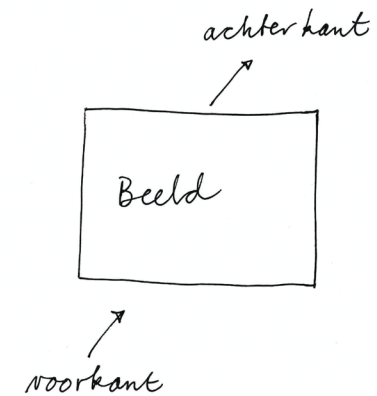 achterkant
Beeld
voorkant